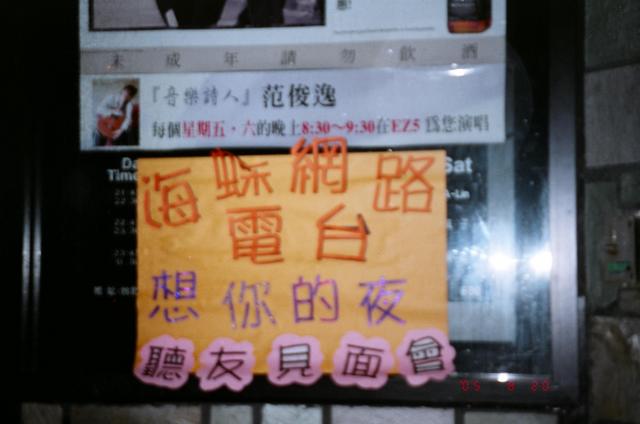 未成年請勿飲酒
『音樂詩人』范俊逸
每個星期五，六的晚上8:30～9:30在EZ5 為您演唱
Sat
Time
海蛛網路
電台
想你的夜
聽友見面會
'05 9 20